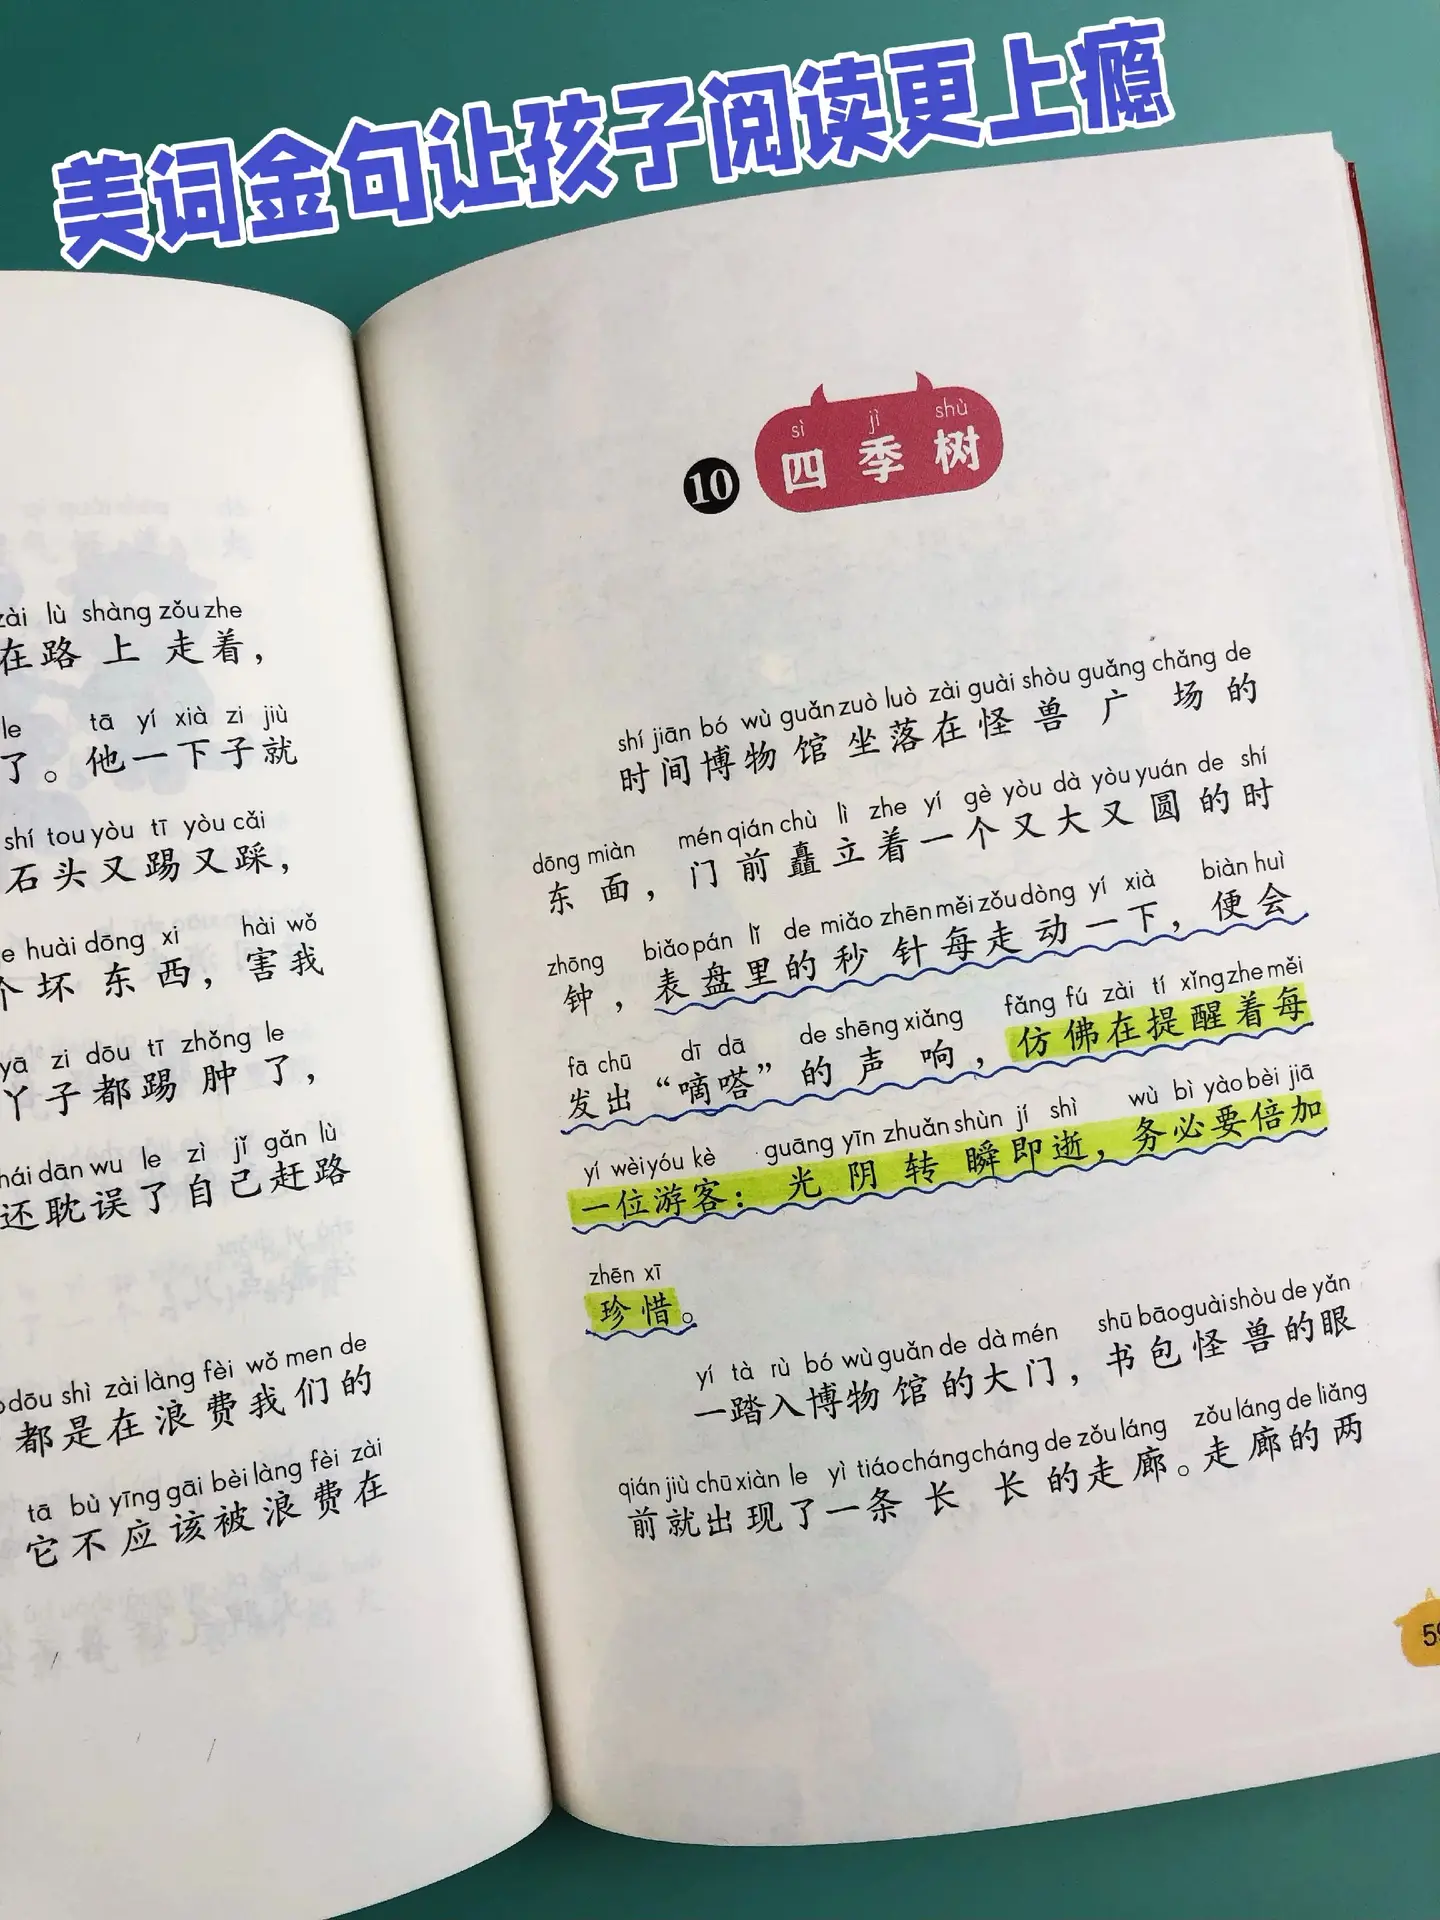 美词金句让孩子阅读更上瘾
zài lù shàng zǒu zhe
在路上走着，
le tā yí xià zi jiù
了。他一下子就
shí tou yòu tī yòu cǎi
石头又踢又踩，
huài dōng xi hài wǒ
个坏东西，害我
yā zi dōu tī zhǒng le
丫子都踢肿了，
hái dān wu le zì jǐ gǎn lù
还耽误了自己赶路
dōu shì zài làng fèi wǒ men de
都是在浪费我们的
tā bù yīng gāi bèi làng fèi zài
它不应该被浪费在
sì jì shù
10 四季树
shí jiān bó wù guǎn zuò luò zài guài shòu guǎng chǎng de
时间博物馆坐落在怪兽广场的
dōng miàn mén qián chù lì zhe yí gè yòu dà yòu yuán de shí
东面，门前矗立着一个又大又圆的时
zhōng biǎo pán lǐ de miǎo zhēn měi zǒu dòng yí xià biàn huì
钟，表盘里的秒针每走动一下，便会
fā chū dī dā de shēng xiǎng fǎng fú zài tí xǐng zhe měi
发出“嘀嗒”的声响，仿佛在提醒着每
yí wèi yóu kè guāng yīn zhuǎn shùn jí shì wù bì yào bèi jiā
一位游客：光阴转瞬即逝，务必要倍加
zhēn xī
珍惜。
yí tà rù bó wù guǎn de dà mén shū bāo guài shòu de yǎn
一踏入博物馆的大门，书包怪兽的眼
qián jiù chū xiàn le yì tiáo cháng cháng de zǒu láng zǒu láng de liǎng
前就出现了一条长长的走廊。走廊的两
59